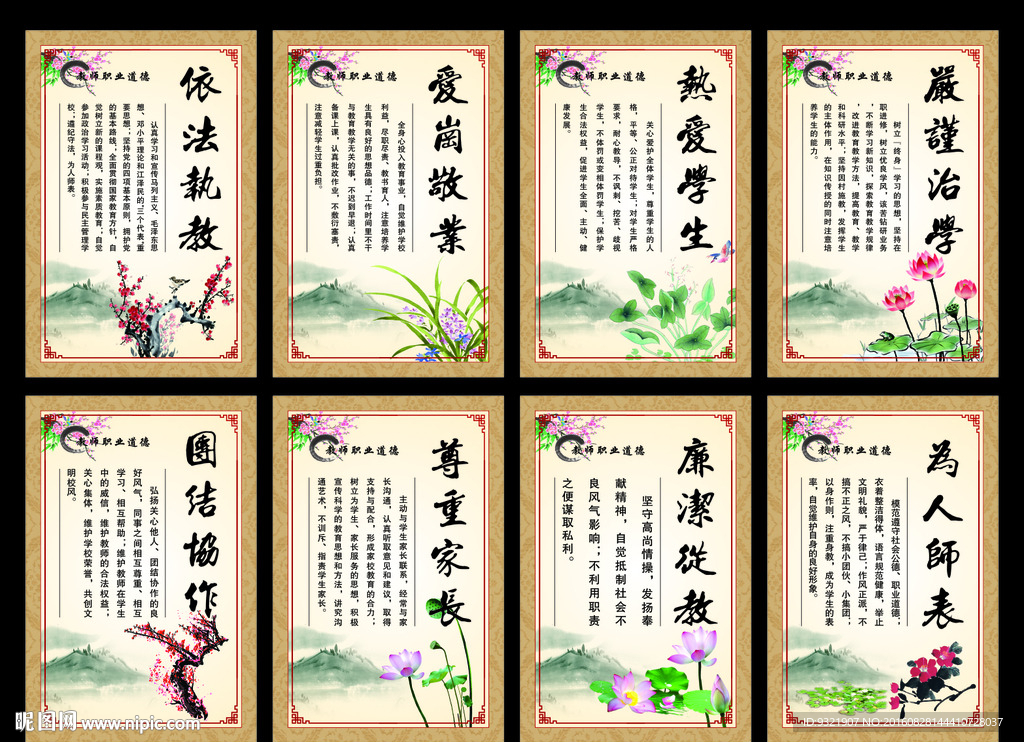 教师职业道德
依法執教
认真学习和宣传马列主义、毛泽东思
想、邓小平理论和江泽民的“三个代表”重
要思想；坚持党的四项基本原则，拥护党
的基本路线；全面贯彻国家教育方针，自
觉树立新的课程观，实施素质教育；自觉
参加政治学习活动；积极参与民主管理学
校；遵纪守法，为人师表。
教师职业道德
愛崗敬業
全身心投入教育事业，自觉维护学校
利益，尽职尽责，教书育人，注意培养学
生具有良好的思想品德；工作时间里不干
与教育教学无关的事，不迟到早退；认真
备课上课，认真批改作业，不敷衍塞责，
注意减轻学生过重负担。
教师职业道德
熱愛學生
关心爱护全体学生，尊重学生的人
格，平等、公正对待学生；对学生严格
要求，耐心教导，不讽刺、挖苦、歧视
学生，不体罚或变相体罚学生；保护学
生合法权益，促进学生全面、主动、健
康发展。
教师职业道德
嚴謹治學
树立「终身」学习的思想，坚持在
职进修，树立优良学风，该苦钻研业务
，不断学习新知识，探索教育教学规律
，改进教育教学方法，提高教育、教学
和科研水平；坚持因材施教，发挥学生
的主体作用，在知识传授的同时注意培
养学生的能力。
教师职业道德
團结協作
弘扬关心他人、团结协作的良
好风气，同事之间相互尊重、相互
学习、相互帮助；维护教师在学生
中的威信，维护教师的合法权益；
关心集体，维护学校荣誉，共创文
明校风。
教师职业道德
尊重家長
主动与学生家长联系，经常与家
长沟通，认真听取意见和建议，取得
支持与配合，形成家校教育的合力；
树立为学生、家长服务的思想，积极
宣传科学的教育思想和方法，讲究沟
通艺术，不训斥、指责学生家长。
教师职业道德
廉潔從教
坚守高尚情操，发扬奉
献精神，自觉抵制社会不
良风气影响；不利用职责
之便谋取私利。
教师职业道德
為人師表
模范遵守社会公德、职业道德；
衣着整洁得体，语言规范健康，举止
文明礼貌，严于律己；作风正派，不
搞不正之风，不搞小团伙、小集团；
以身作则，注重身教，成为学生的表
率，自觉维护自身的良好形象。
昵图网 www.nipic.com
ID:9321907 NO:20160828144410728037